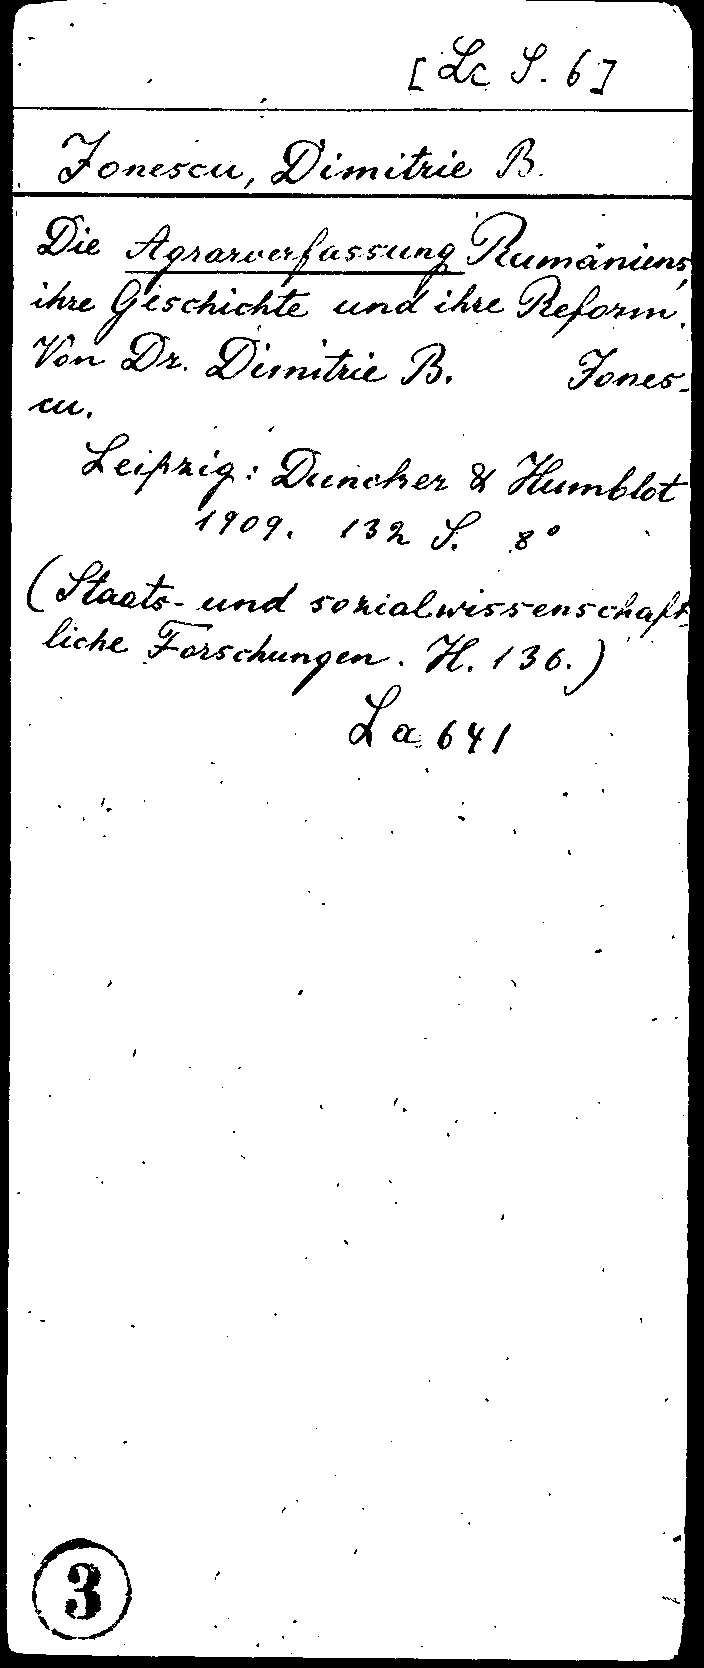 [Lc S. 6]
Jonescu, Dimitrie B.
Die Agrarverfassung Rumäniens,
ihre Geschichte und ihre Reform.
Von Dr. Dimitrie B. Jones-
cu.
Leipzig: Duncker & Humblot
1909. 132 S. 8°
(Staats- und sozialwissenschaft-
liche Forschungen. H. 136.)
La 641
3